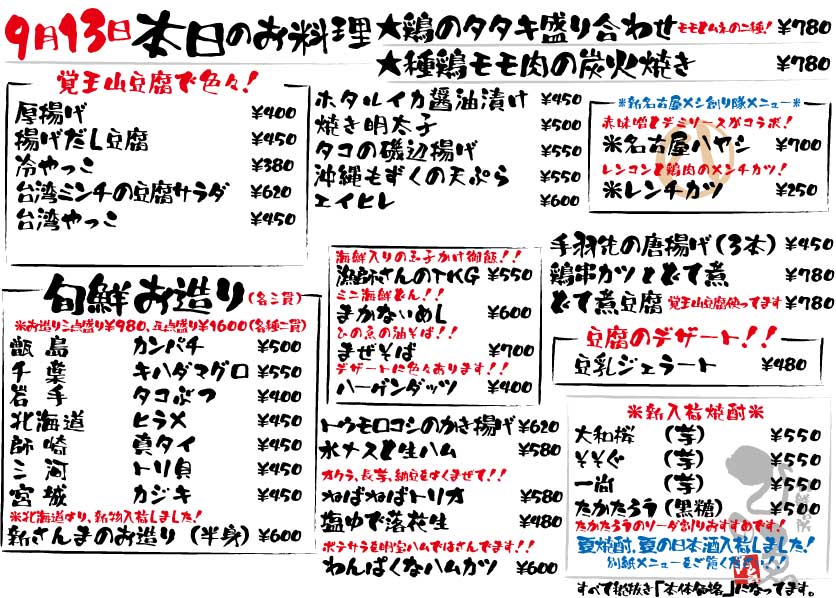 9月13日 本日のお料理
★鶏のタタキ盛り合わせ モモとムネの二種! ¥780
★種鶏モモ肉の炭火焼き ¥780
覚王山豆腐で色々!
厚揚げ ¥400
揚げだし豆腐 ¥450
冷やっこ ¥380
台湾ミンチの豆腐サラダ ¥620
台湾やっこ ¥450
ホタルイカ醤油漬け ¥450
焼き明太子 ¥500
タコの磯辺揚げ ¥550
沖縄もずくの天ぷら ¥550
エイヒレ ¥600
※新名古屋メシ創り隊メニュー※
赤味噌とデミソースがコラボ!
※名古屋ハヤシ ¥700
レンコンと鶏肉のメンチカツ!
※レンチカツ ¥250
旬鮮お造り(各三貫)
※お造り三点盛り¥980、五点盛り¥1600(各種二貫)
甑島 カンパチ ¥500
千葉 キハダマグロ ¥550
岩手 タコぶつ ¥400
北海道 ヒラメ ¥450
師崎 真タイ ¥450
三河 トリ貝 ¥450
宮城 カジキ ¥450
※北海道より、新物入荷しました!
新さんまのお造り(半身) ¥600
海鮮入りの玉子かけ御飯!!
漁師さんのTKG ¥550
ミニ海鮮どん!!
まかないめし ¥600
ひの魚の油そば!!
まぜそば ¥700
デザートに色々あります!!
ハーゲンダッツ ¥400
トウモロコシのかき揚げ ¥620
水ナスと生ハム ¥580
オクラ、長芋、納豆をよくまぜて!!
ねばねばトリオ ¥580
塩ゆで落花生 ¥480
ポテサラを明宝ハムではさんでます!!
わんぱくなハムカツ ¥600
手羽先の唐揚げ(3本) ¥450
鶏串カツとどて煮 ¥780
どて煮豆腐 覚王山豆腐使ってます ¥780
豆腐のデザート!!
豆乳ジェラート ¥480
※新入荷焼酎※
大和桜 (芋) ¥550
そそぐ (芋) ¥550
一尚 (芋) ¥550
たかたろう(黒糖) ¥500
たかたろうのソーダ割りおすすめです!
夏焼酎、夏の日本酒入荷しました!
別紙メニューをご覧ください!!
すべて税抜き「本体価格」になってます。